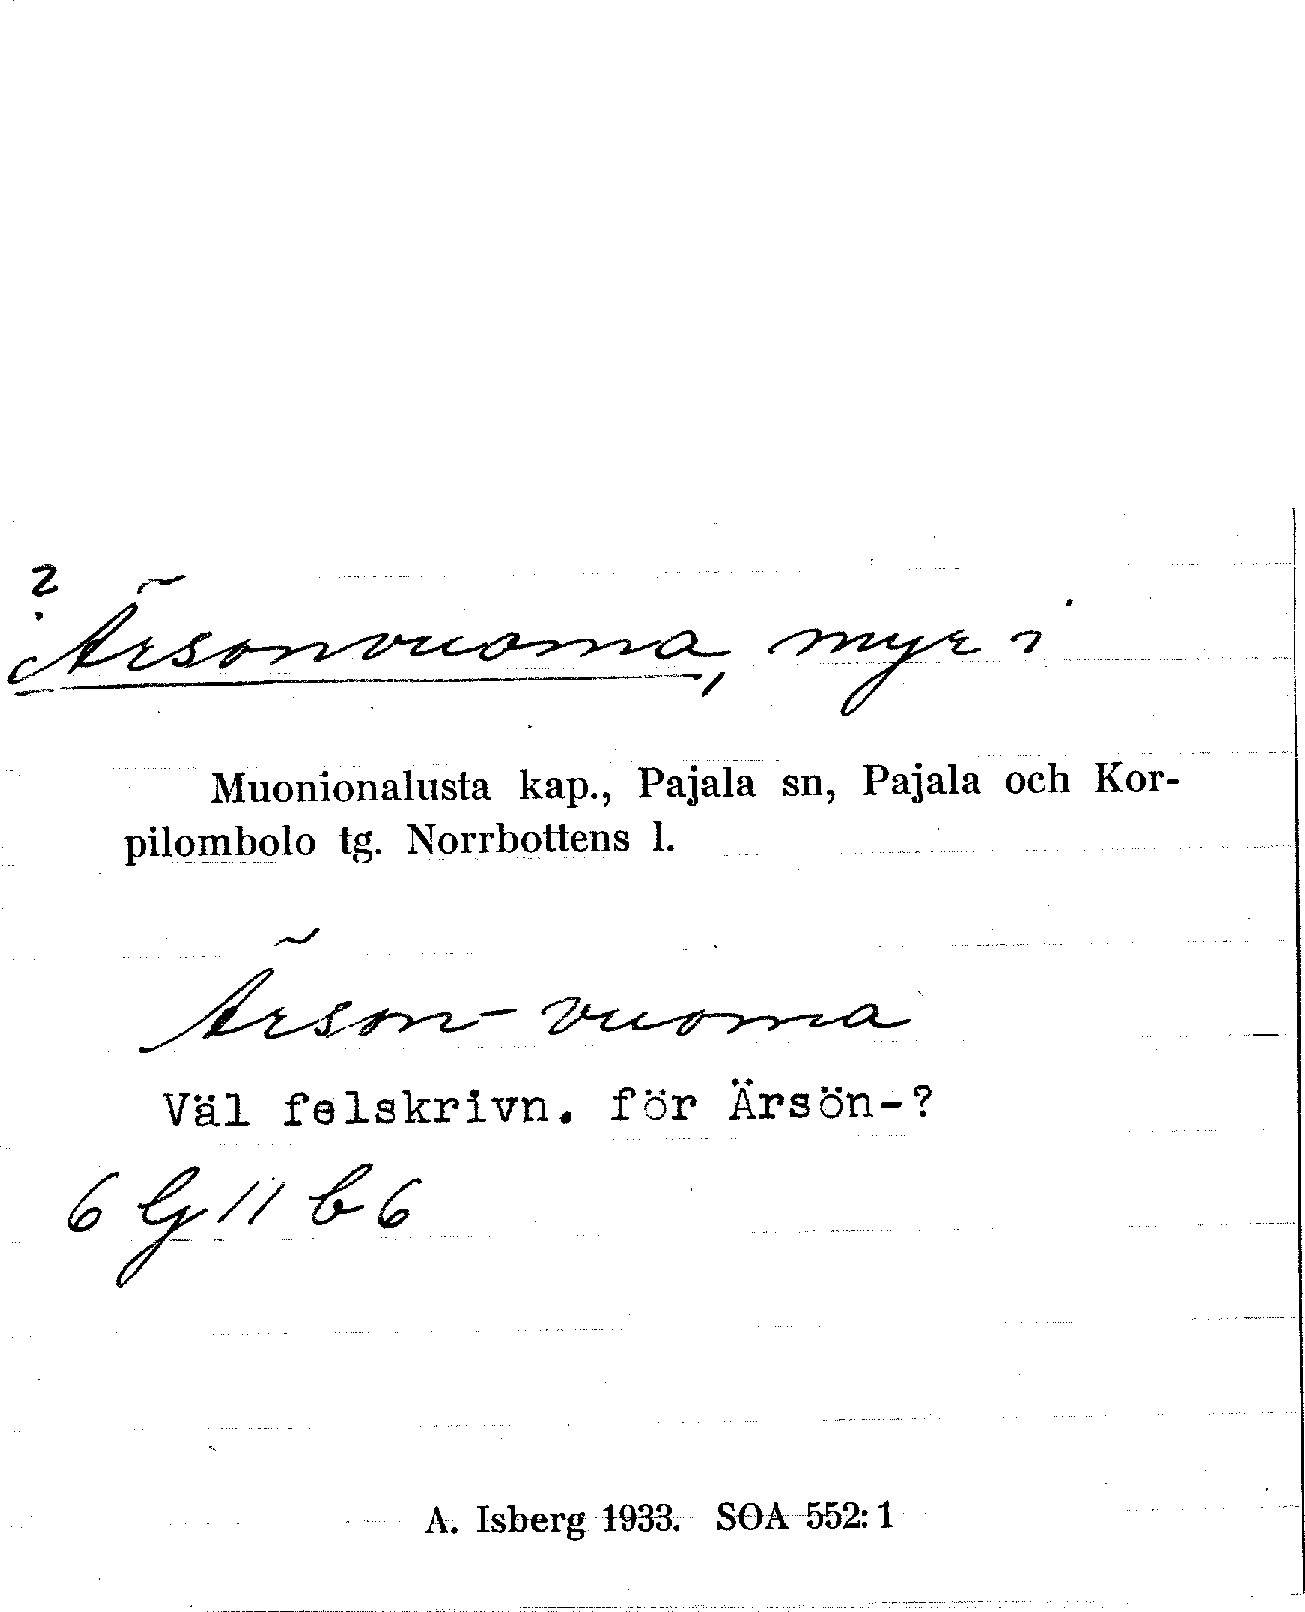 ?
Ärsonvuoma, myr i
Muonionalusta kap., Pajala sn, Pajala och Kor-
pilombolo tg. Norrbottens l.
Ärson-vuoma
Väl felskrivn. för Ärsön-?
6 G 11 b 6
A. Isberg 1933. SOA 552:1